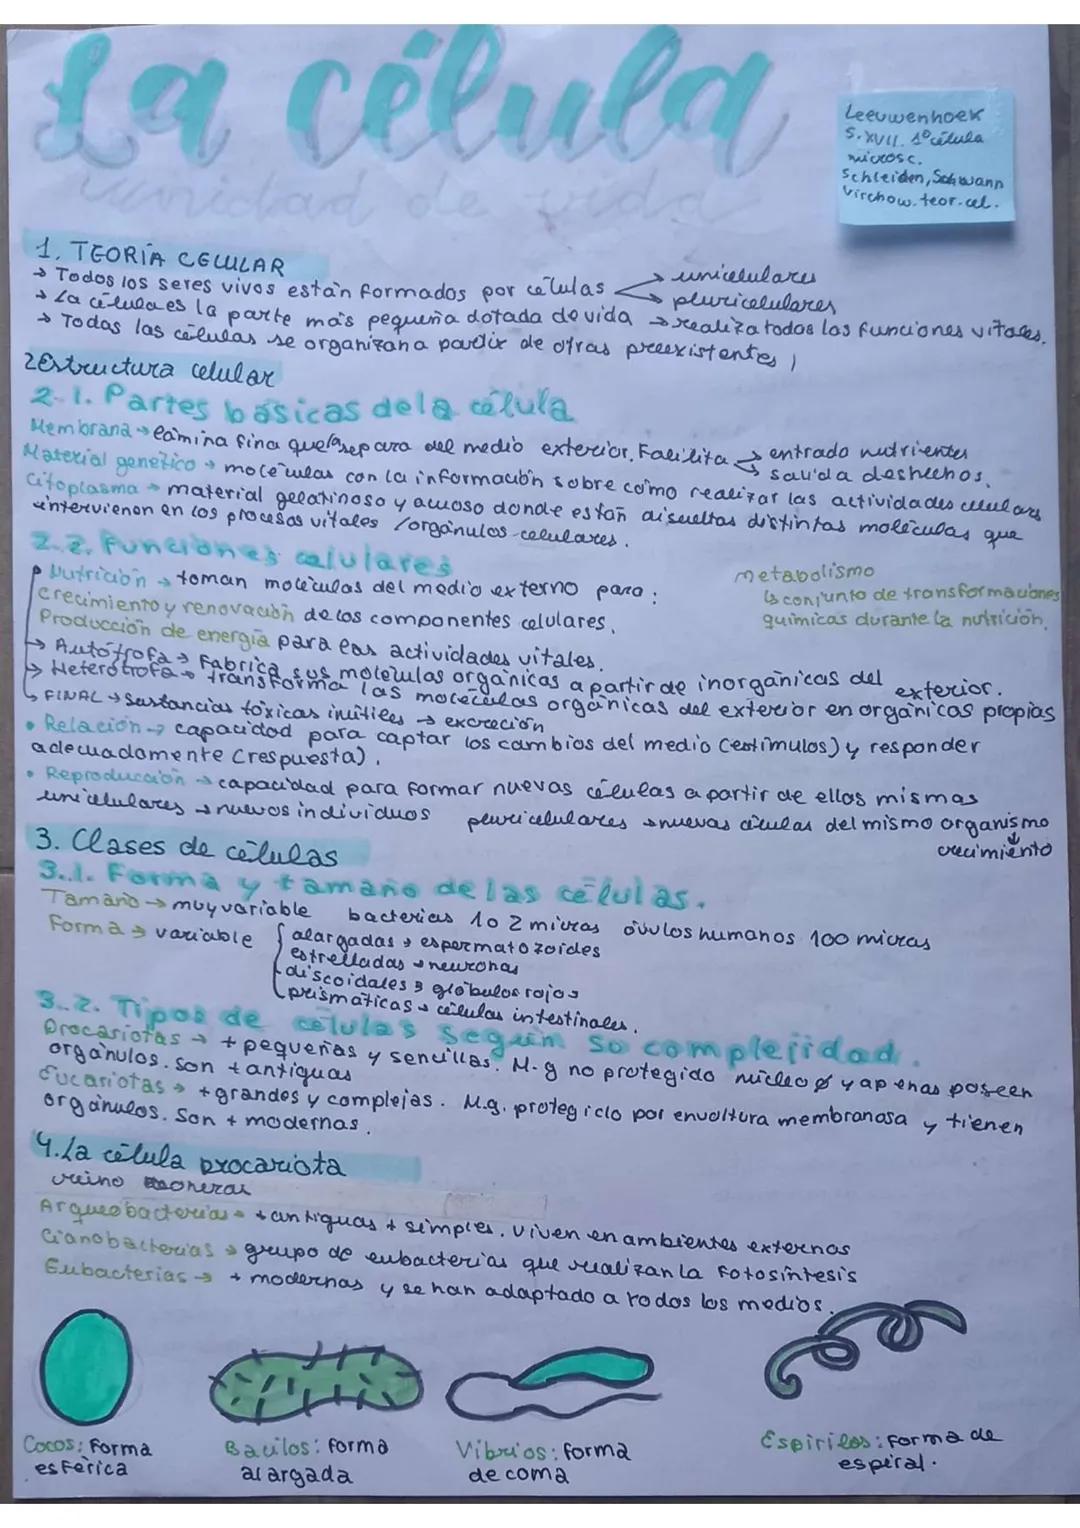 La célula
unidad de vida
Leeuwenhoek
S.XVII. 1º célula
microsc.
Schleiden, Schwann
Virchow. teor. cel.
1. TEORÍA CELULAR
→ Todos los seres vivos están formados por células → unicelulares
→ pluricelulares
→ La célula es la parte más pequeña dotada de vida → realiza todas las funciones vitales.
→ Todas las células se organizan a partir de otras preexistentes
2 Estructura celular
2.1. Partes básicas de la célula
Membrana → lámina fina que la separa del medio exterior. Facilita → entrada nutrientes
→ salida deshechos.
Material genético → moléculas con la información sobre cómo realizar las actividades celulars
Citoplasma → material gelatinoso y acuoso donde están disueltas distintas moléculas que
intervienen en los procesos vitales / orgánulos celulares.
2.2. Funciones celulares
• Nutrición → toman moléculas del medio externo para:
Crecimiento y renovación de los componentes celulares.
Producción de energía para las actividades vitales.
metabolismo
↳ conjunto de transformaciones
químicas durante la nutrición.
→ Autótrofa → Fabrica sus moléculas orgánicas a partir de inorgánicas del exterior.
→ Heterótrofa → transforma las moléculas orgánicas del exterior en orgánicas propias
↳ FINAL → Sustancias tóxicas inútiles → excreción
• Relación → capacidad para captar los cambios del medio (estímulos) y responder
adecuadamente (respuesta).
• Reproducción → capacidad para formar nuevas células a partir de ellas mismas
unicelulares → nuevos individuos pluricelulares → nuevas células del mismo organismo
↓
crecimiento
3. Clases de células
3.1. Forma y tamaño de las células.
Tamaño → muy variable bacterias 1 o 2 micras óvulos humanos 100 micras
Forma → variable { alargadas → espermatozoides
estrelladas → neuronas
discoidales → glóbulos rojos
prismáticas → células intestinales.
3.2. Tipos de células según so complejidad.
Procariotas → + pequeñas y sencillas. M.g no protegido núcleo ø y apenas poseen
orgánulos. Son + antiguas
Eucariotas → + grandes y complejas. M.g. protegido por envoltura membranosa y tienen
orgánulos. Son + modernas.
4. La célula procariota
reino moneras
Arqueobacterias → + antiguas + simples. Viven en ambientes externos
Cianobacterias → grupo de eubacterias que realizan la fotosíntesis
Eubacterias → + modernas y se han adaptado a todos los medios.
Cocos: forma
esférica
Bacilos: forma
alargada
Vibrios: forma
de coma
Espirilos: forma de
espiral.